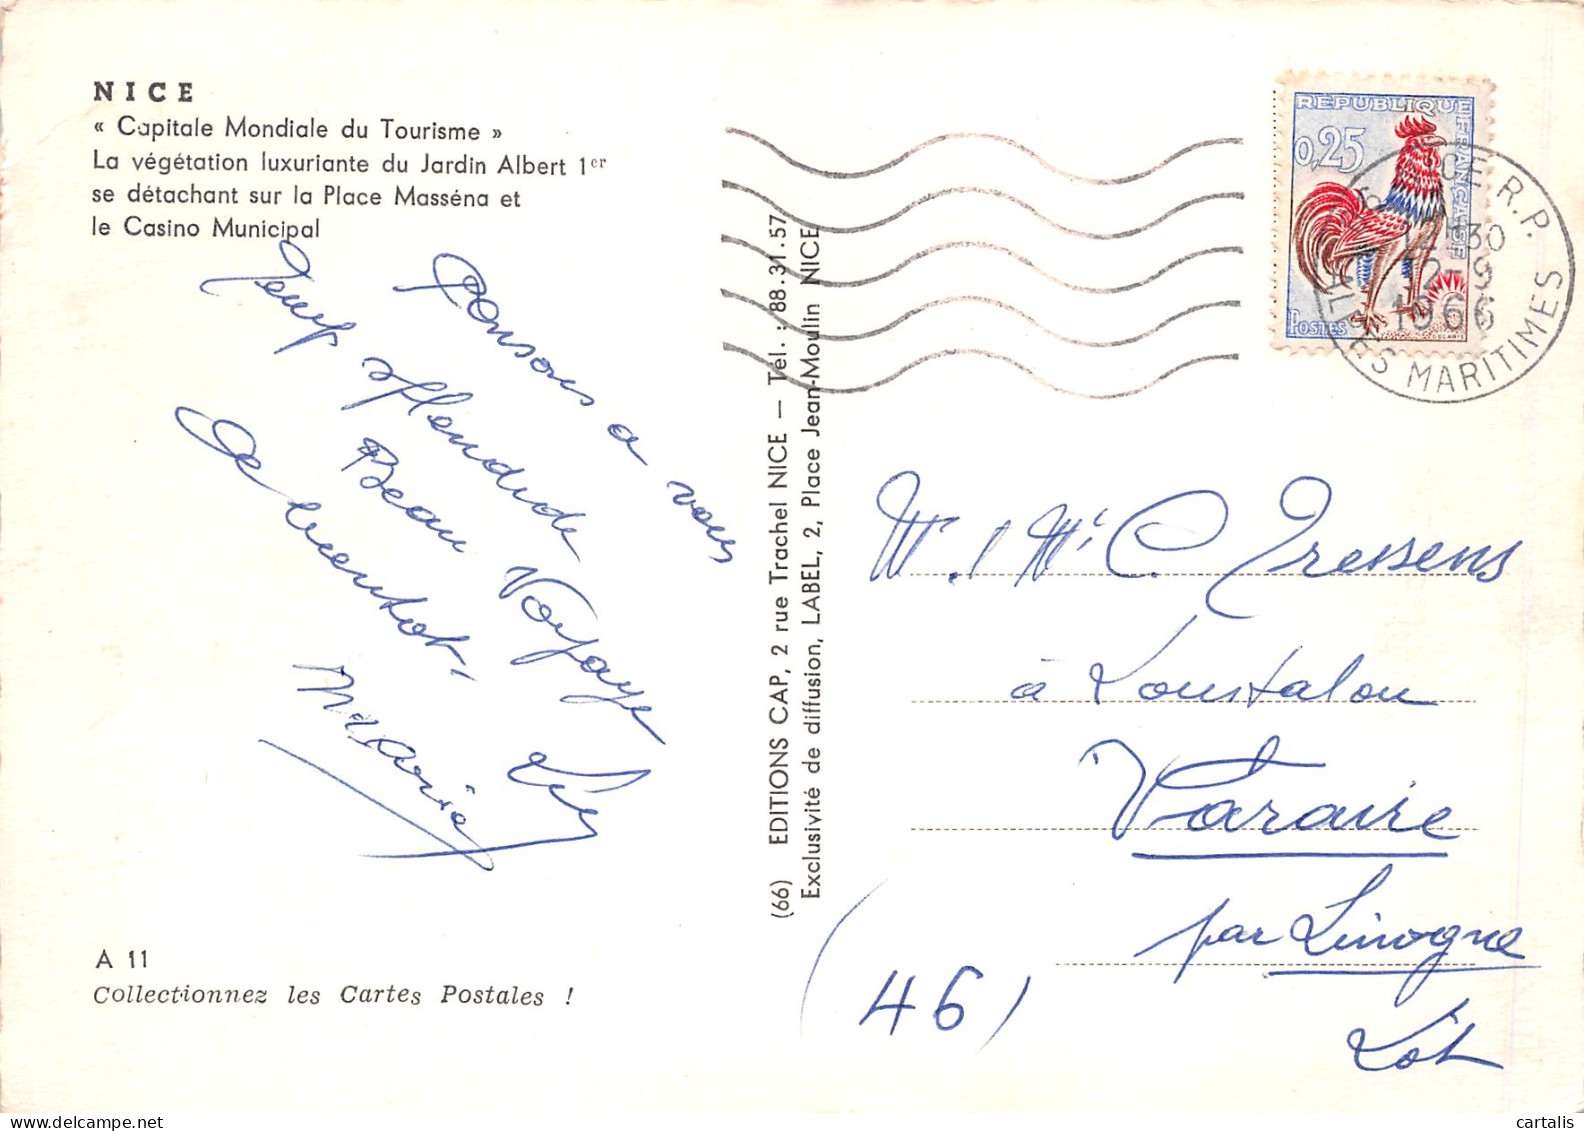 NICE
« Capitale Mondiale du Tourisme »
La végétation luxuriante du Jardin Albert 1er
se détachant sur la Place Masséna et
le Casino Municipal
Pensons a vous
Temps splendide
Beau Voyage
A bientot
Maria
A 11
Collectionnez les Cartes Postales !
(66) EDITIONS CAP, 2 rue Trachel NICE — Tél. : 88.31.57
Exclusivité de diffusion, LABEL, 2, Place Jean-Moulin NICE
REPUBLIQUE FRANÇAISE
0,25
POSTES
DECARIS
NICE R.P.
12H30
12-9
1966
ALPES MARITIMES
M. C. Tressens
à Loustalou
Varaire
par Limogne
(46)
Lot
cartalis
delcampe.net